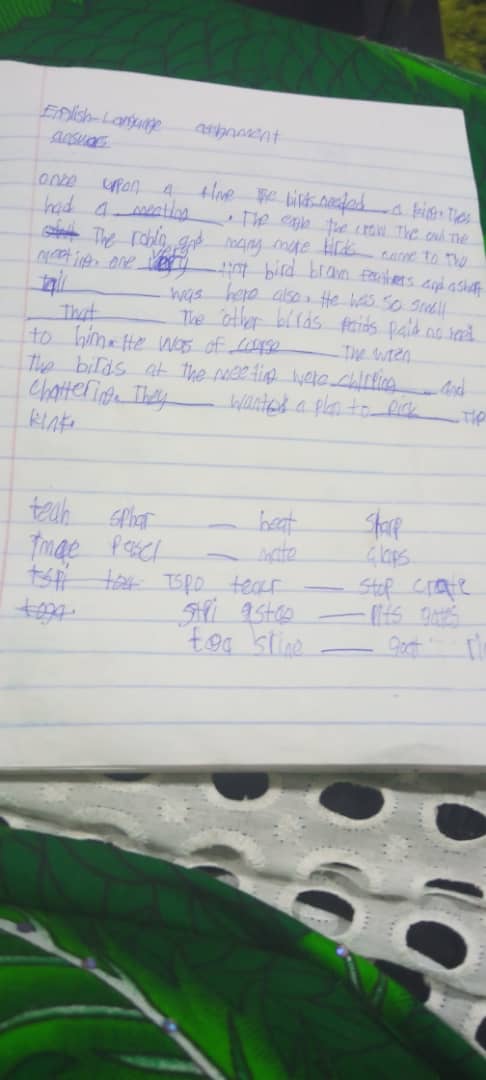 English-Language assignment
answers
once upon a time The birds needed a king. They
had a meeting. The eagle The crow The owl The
The robin and many more birds came to The
meeting. one Very tiny bird brown feathers and a short
Tail was here also. He was so small
That The other birds paid no heed
to him. He was of course The wren
The birds at The meeting were chirping and
chattering. They wanted a plan to pick The
king.
teah sphar — heat Sharp
Tmae — mate
TSPO — stop crate
stpi — Pits gates
tog stine — goat